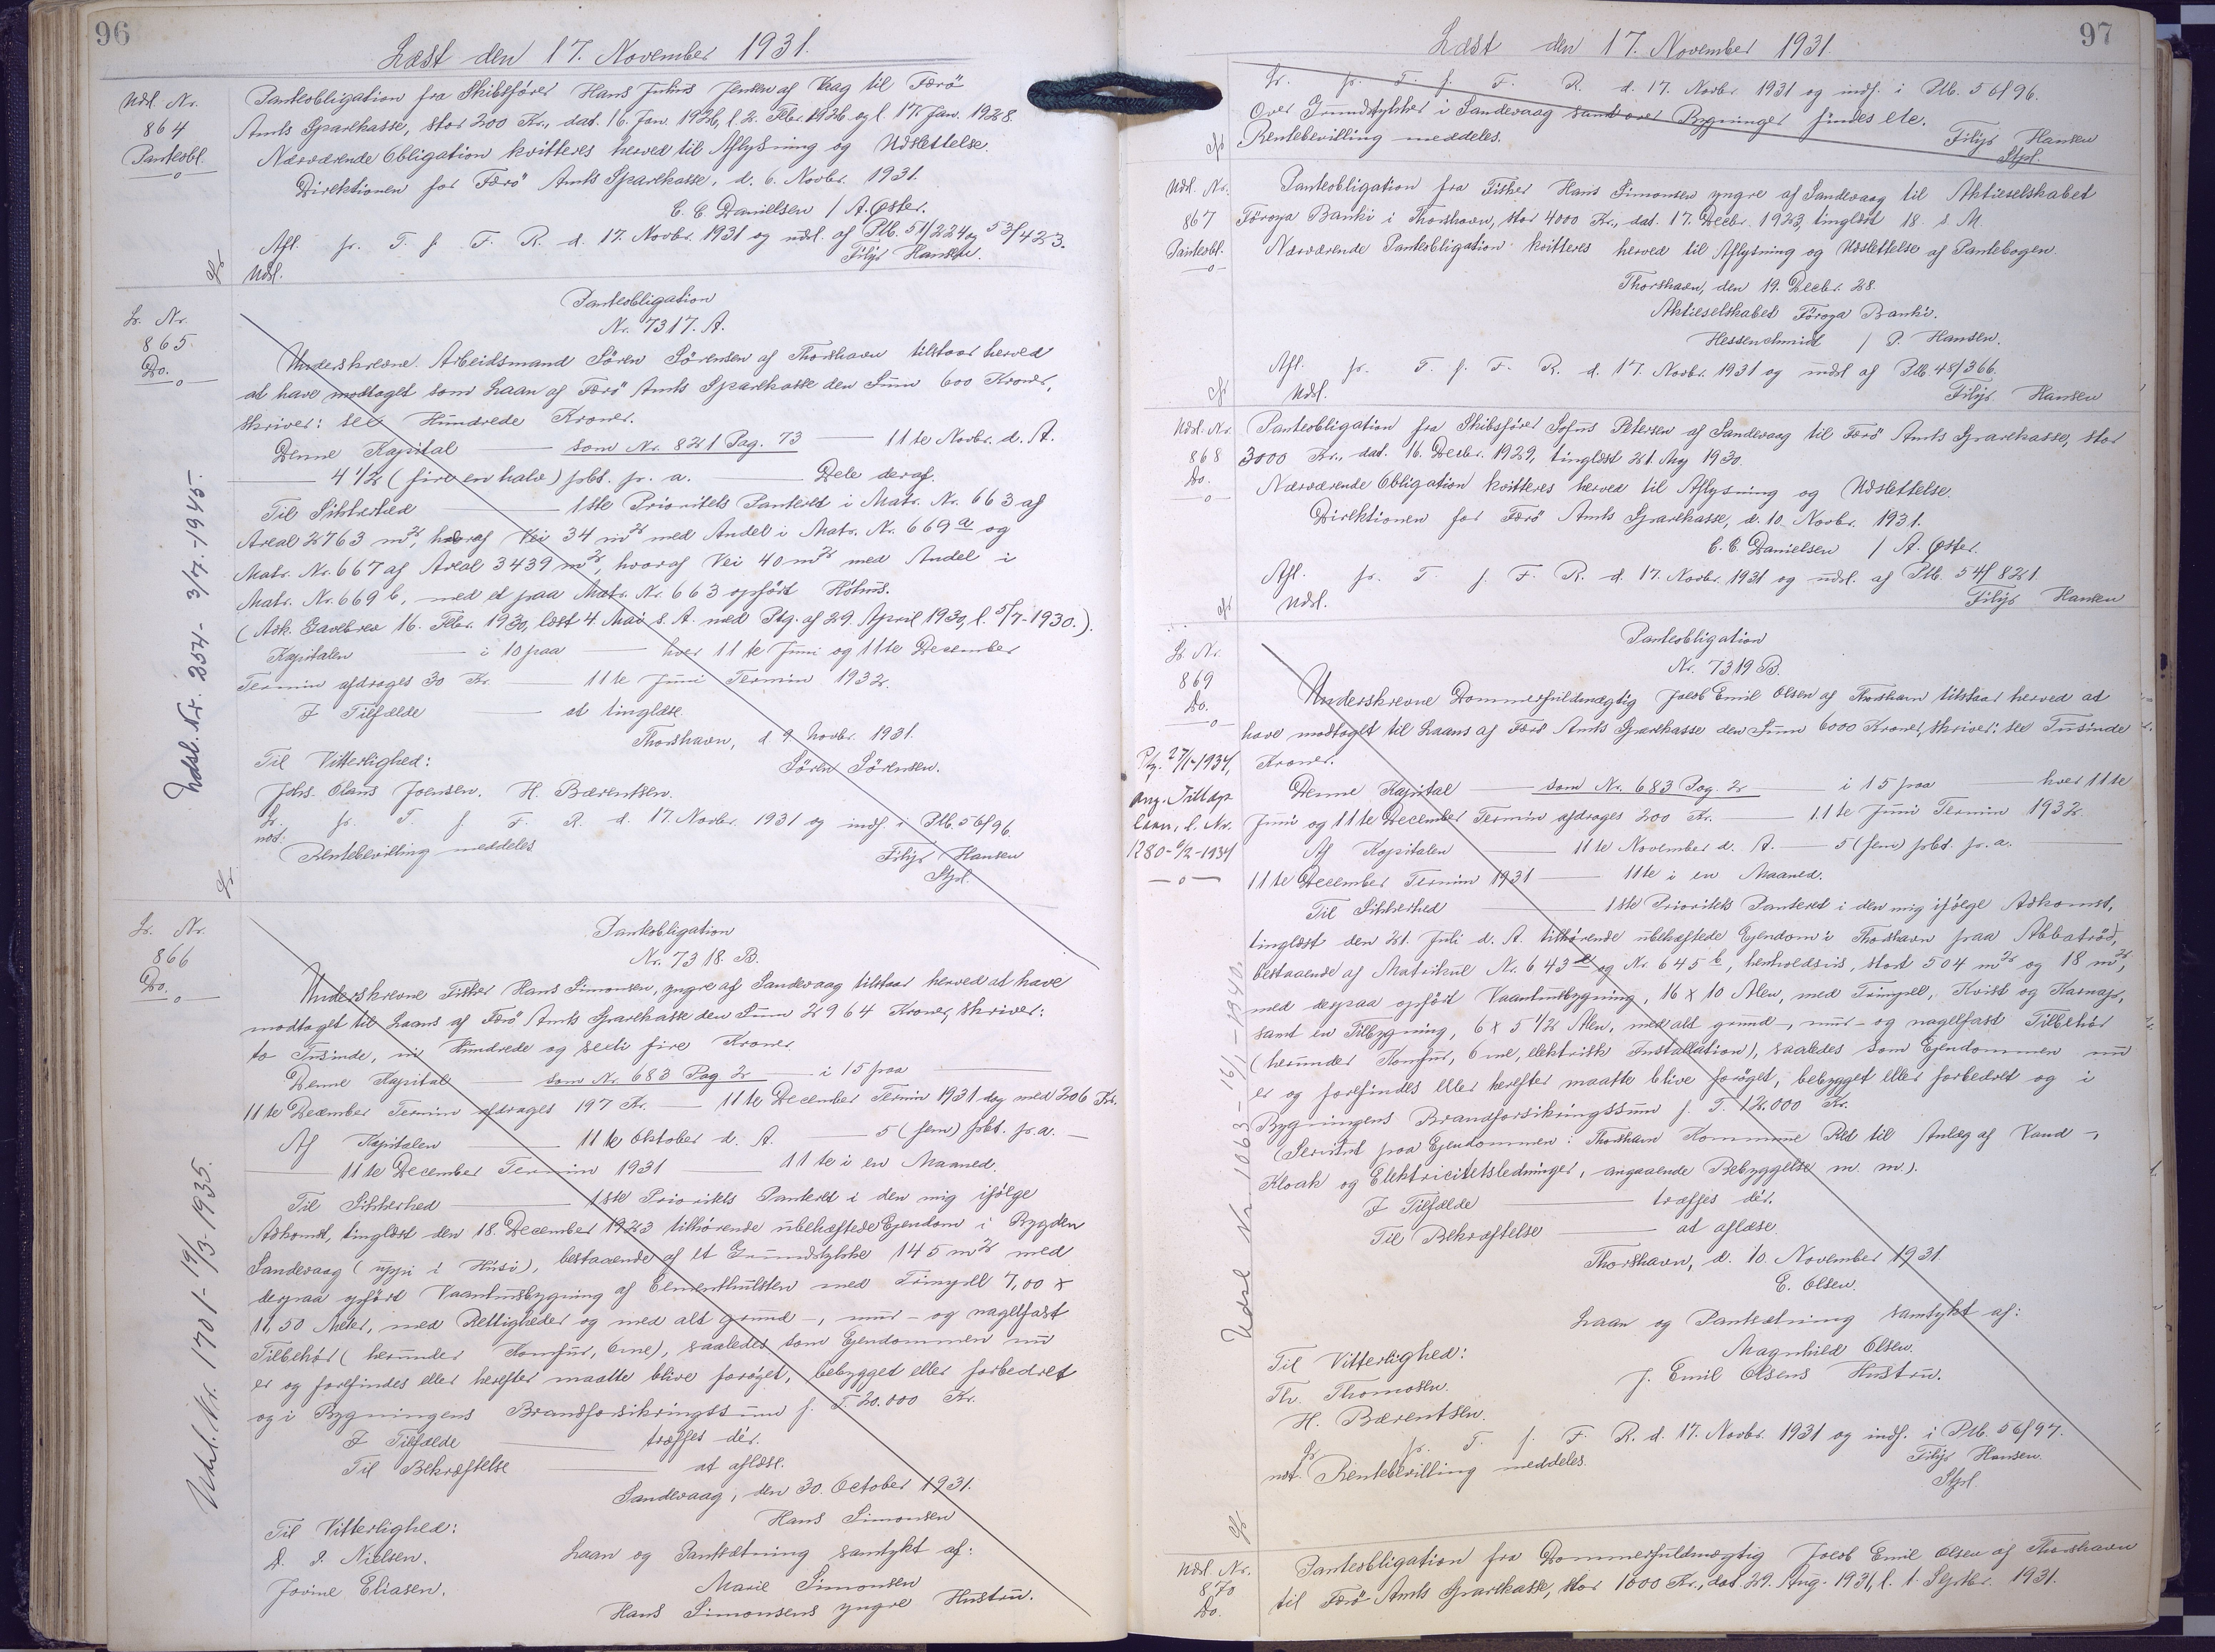 96
Læst den 17. November 1931.
Udsl. Nr.
864
Panteobl.
Panteobligation fra Skibsfører Hans Julius Jensen af Vaag til Færö
Amts Sparekasse, stor 200 Kr., dat. 16. Jan. 1926, l. 2. Febr. 1926 og l. 17. Jan. 1928.
Nærværende Obligation kvitteres herved til Aflysning og Udslettelse.
Direktionen for Færö Amts Sparekasse, d. 6. Novbr. 1931.
C. C. Danielsen / A. Øster.
Afl. pr. T. f. F. R. d. 17. Novbr. 1931 og udsl. af Ptb. 51/224 og 53/423.
Udsl. Filip Hansen.
Lr. Nr.
865.
Do.
Panteobligation
Nr. 7317. A.
Underskrevne Arbeidsmand Sören Sörensen af Thorshavn tilstaar herved
at have modtaget som Laan af Færö Amts Sparekasse den Sum 600 Kroner,
skriver: sex Hundrede Kroner.
Denne Kapital som Nr. 821 Pag. 73 11te Novbr. d. A.
4 1/2 (fire en halv) pCt. pr. a. Dele deraf.
Til Sikkerhed 1ste Prioritets Panteret i Matr. Nr. 663 af
Areal 2763 m2, hvoraf Vei 34 m2 med Andel i Matr. Nr. 669 a og
Matr. Nr. 667 af Areal 3439 m2, hvoraf Vei 40 m2 med Andel i
Matr. Nr. 669 b, med et paa Matr. Nr. 663 opført Höhus.
(Adk. Gavebrev 16. Febr. 1930, læst 4. Mai s. A. med Ptg. af 29. April 1930, l. 5/7-1930.).
Kapitalen i 10 paa hver 11te Juni og 11te December
Termin afdrages 30 Kr. 11te Juni Termin 1932.
I Tilfælde at tinglæse.
Thorshavn, d. 9 Novbr. 1931.
Til Vitterlighed: Sören Sörensen.
Johs. Olaus Joensen. H. Bærentsen.
Lr. pr. T. f. F. R. d. 17. Novbr. 1931 og indf. i Ptb. 56/96.
not. Rentebevilling meddeles Filip Hansen
Stpl.
Udsl. Nr. 254 - 3/7.-1945.
Lr. Nr.
866
Do.
Panteobligation
Nr. 7318. B.
Underskrevne Fisker Hans Simonsen, yngre af Sandevaag tilstaar herved at have
modtaget til Laans af Færö Amts Sparekasse den Sum 2964 Kroner, skriver:
to Tusinde, ni Hundrede og sexti fire Kroner
Denne Kapital som Nr. 683 Pag 2 i 15 paa
11te December Termin afdrages 197 Kr. 11te December Termin 1931 dog med 206 Kr.
Af Kapitalen 11te Oktober d. A. 5 (fem) pCt. pr. a.
11te December Termin 1931 11te i en Maaned.
Til Sikkerhed 1ste Prioritets Panteret i den mig ifölge
Adkomst, tinglæst den 18. December 1923 tilhørende ubehæftede Ejendom i Bygden
Sandevaag (uppi i Húsi), bestaaende af et Grundstykke 145 m2 med
derpaa opført Vaaningsbygning af Cementhulsten med Trimpell 7,00 x
11,50 Meter, med Rettigheder og med alt grund-, mur- og nagelfast
Tilbehør (herunder Komfur, Ovne), saaledes som Ejendommen nu
er og forefindes eller herefter maatte blive forøget, bebygget eller forbedret
og i Bygningens Brandforsikringssum p. T. 20.000 Kr.
I Tilfælde træffes dér.
Til Bekræftelse at aflæse.
Sandevaag, den 30. October 1931.
Til Vitterlighed: Hans Simonsen
D. P. Nielsen. Laan og Pantsætning samtykt af:
Jovine Eliasen. Marie Simonsen
Hans Simonsens yngre Hustru.
Udsl. Nr. 1701 - 19/3-1935.
97
Læst den 17. November 1931.
Lr. pr. T. f. F. R. d. 17. Novbr. 1931 og indf. i Ptb. 56/96.
Over Grundstykket i Sandevaag samt over Bygninger findes etc.
Rentebevilling meddeles. Filip Hansen
Stpl.
Udsl. Nr.
867
Panteobl.
Panteobligation fra Fisker Hans Simonsen yngre af Sandevaag til Aktieselskabet
Föroya Banki i Thorshavn, stor 4000 Kr., dat. 17. Decbr. 1923, tinglæst 18. s. M.
Nærværende Panteobligation kvitteres herved til Aflysning og Udslettelse af Pantebogen.
Thorshavn, den 19. Decbr. 28.
Aktieselskabet Föroya Banki.
Hessenschmidt / P. Hansen.
Afl. pr. T. f. F. R. d. 17. Novbr. 1931 og udsl af Ptb. 48/366.
Udsl. Filip Hansen
Udsl. Nr.
868
Do.
Panteobligation fra Skibsfører Sofus Petersen af Sandevaag til Færö Amts Sparekasse, stor
3000 Kr., dat. 16. Decbr. 1929, tinglæst 21. Aug 1930.
Nærværende Obligation kvitteres herved til Aflysning og Udslettelse.
Direktionen for Færö Amts Sparekasse, d. 10. Novbr. 1931.
C. C. Danielsen / A. Øster.
Afl. pr. T. f. F. R. d. 17. Novbr. 1931 og udsl. af Ptb. 54/821
Udsl. Filip Hansen
Lr. Nr.
869
Do.
Ptg. 27/1-1934,
ang. Tillægs
laan, l. Nr.
1280 - 6/2-1934
Panteobligation
Nr. 7319 B.
Underskrevne Dommerfuldmægtig Jacob Emil Olsen af Thorshavn tilstaar herved at
have modtaget til Laans af Færö Amts Sparekasse den Sum 6000 Kroner, skriver: sex Tusinde
Kroner.
Denne Kapital som Nr. 683 Pag. 2 i 15 paa hver 11te
Juni og 11te December Termin afdrages 200 Kr. 11te Juni Termin 1932.
Af Kapitalen 11te November d. A. 5 (fem) pCt. pr. a.
11te December Termin 1931 11te i en Maaned.
Til Sikkerhed 1ste Prioritets Panteret i den mig ifölge Adkomst,
tinglæst den 21. Juli d. A. tilhørende ubehæftede Ejendom i Thorshavn paa Abbatröd,
bestaaende af Matrikul Nr. 643 e og Nr. 645 b, henholdsvis, stort 504 m2 og 18 m2,
med derpaa opført Vaaningsbygning, 16 x 10 Alen, med Trimpell, Kvist og Karnap,
samt en Tilbygning, 6 x 5 1/2 Alen, med alt grund-, mur- og nagelfast Tilbehör
(herunder Komfur, Ovne, elektrisk Installation), saaledes som Ejendommen nu
er og forefindes eller herefter maatte blive forøget, bebygget eller forbedret og i
Bygningens Brandforsikringssum p. T. 12.000 Kr.
(Servitut paa Ejendommen: Thorshavn Kommune Ret til Anlæg af Vand-,
Kloak og Elektricitetsledninger, angaaende Bebyggelse m. m.).
I Tilfælde træffes dér.
Til Bekræftelse at aflæse
Thorshavn, d. 10. November 1931.
E. Olsen.
Laan og Pantsætning samtykt af:
Til Vitterlighed: Magnhild Olsen.
Th. Thomsen. J. Emil Olsens Hustru.
H. Bærentsen.
Lr. pr. T. f. F. R. d. 17. Novbr. 1931 og indf. i Ptb. 56/97.
not. Rentebevilling meddeles. Filip Hansen.
Stpl.
Udsl. Nr. 1063 - 16/1-1940.
Udsl. Nr.
870
Do.
Panteobligation fra Dommerfuldmægtig Jacob Emil Olsen af Thorshavn
til Færö Amts Sparekasse, stor 1000 Kr., dat. 29. Aug. 1931, l. 1. Septbr. 1931.